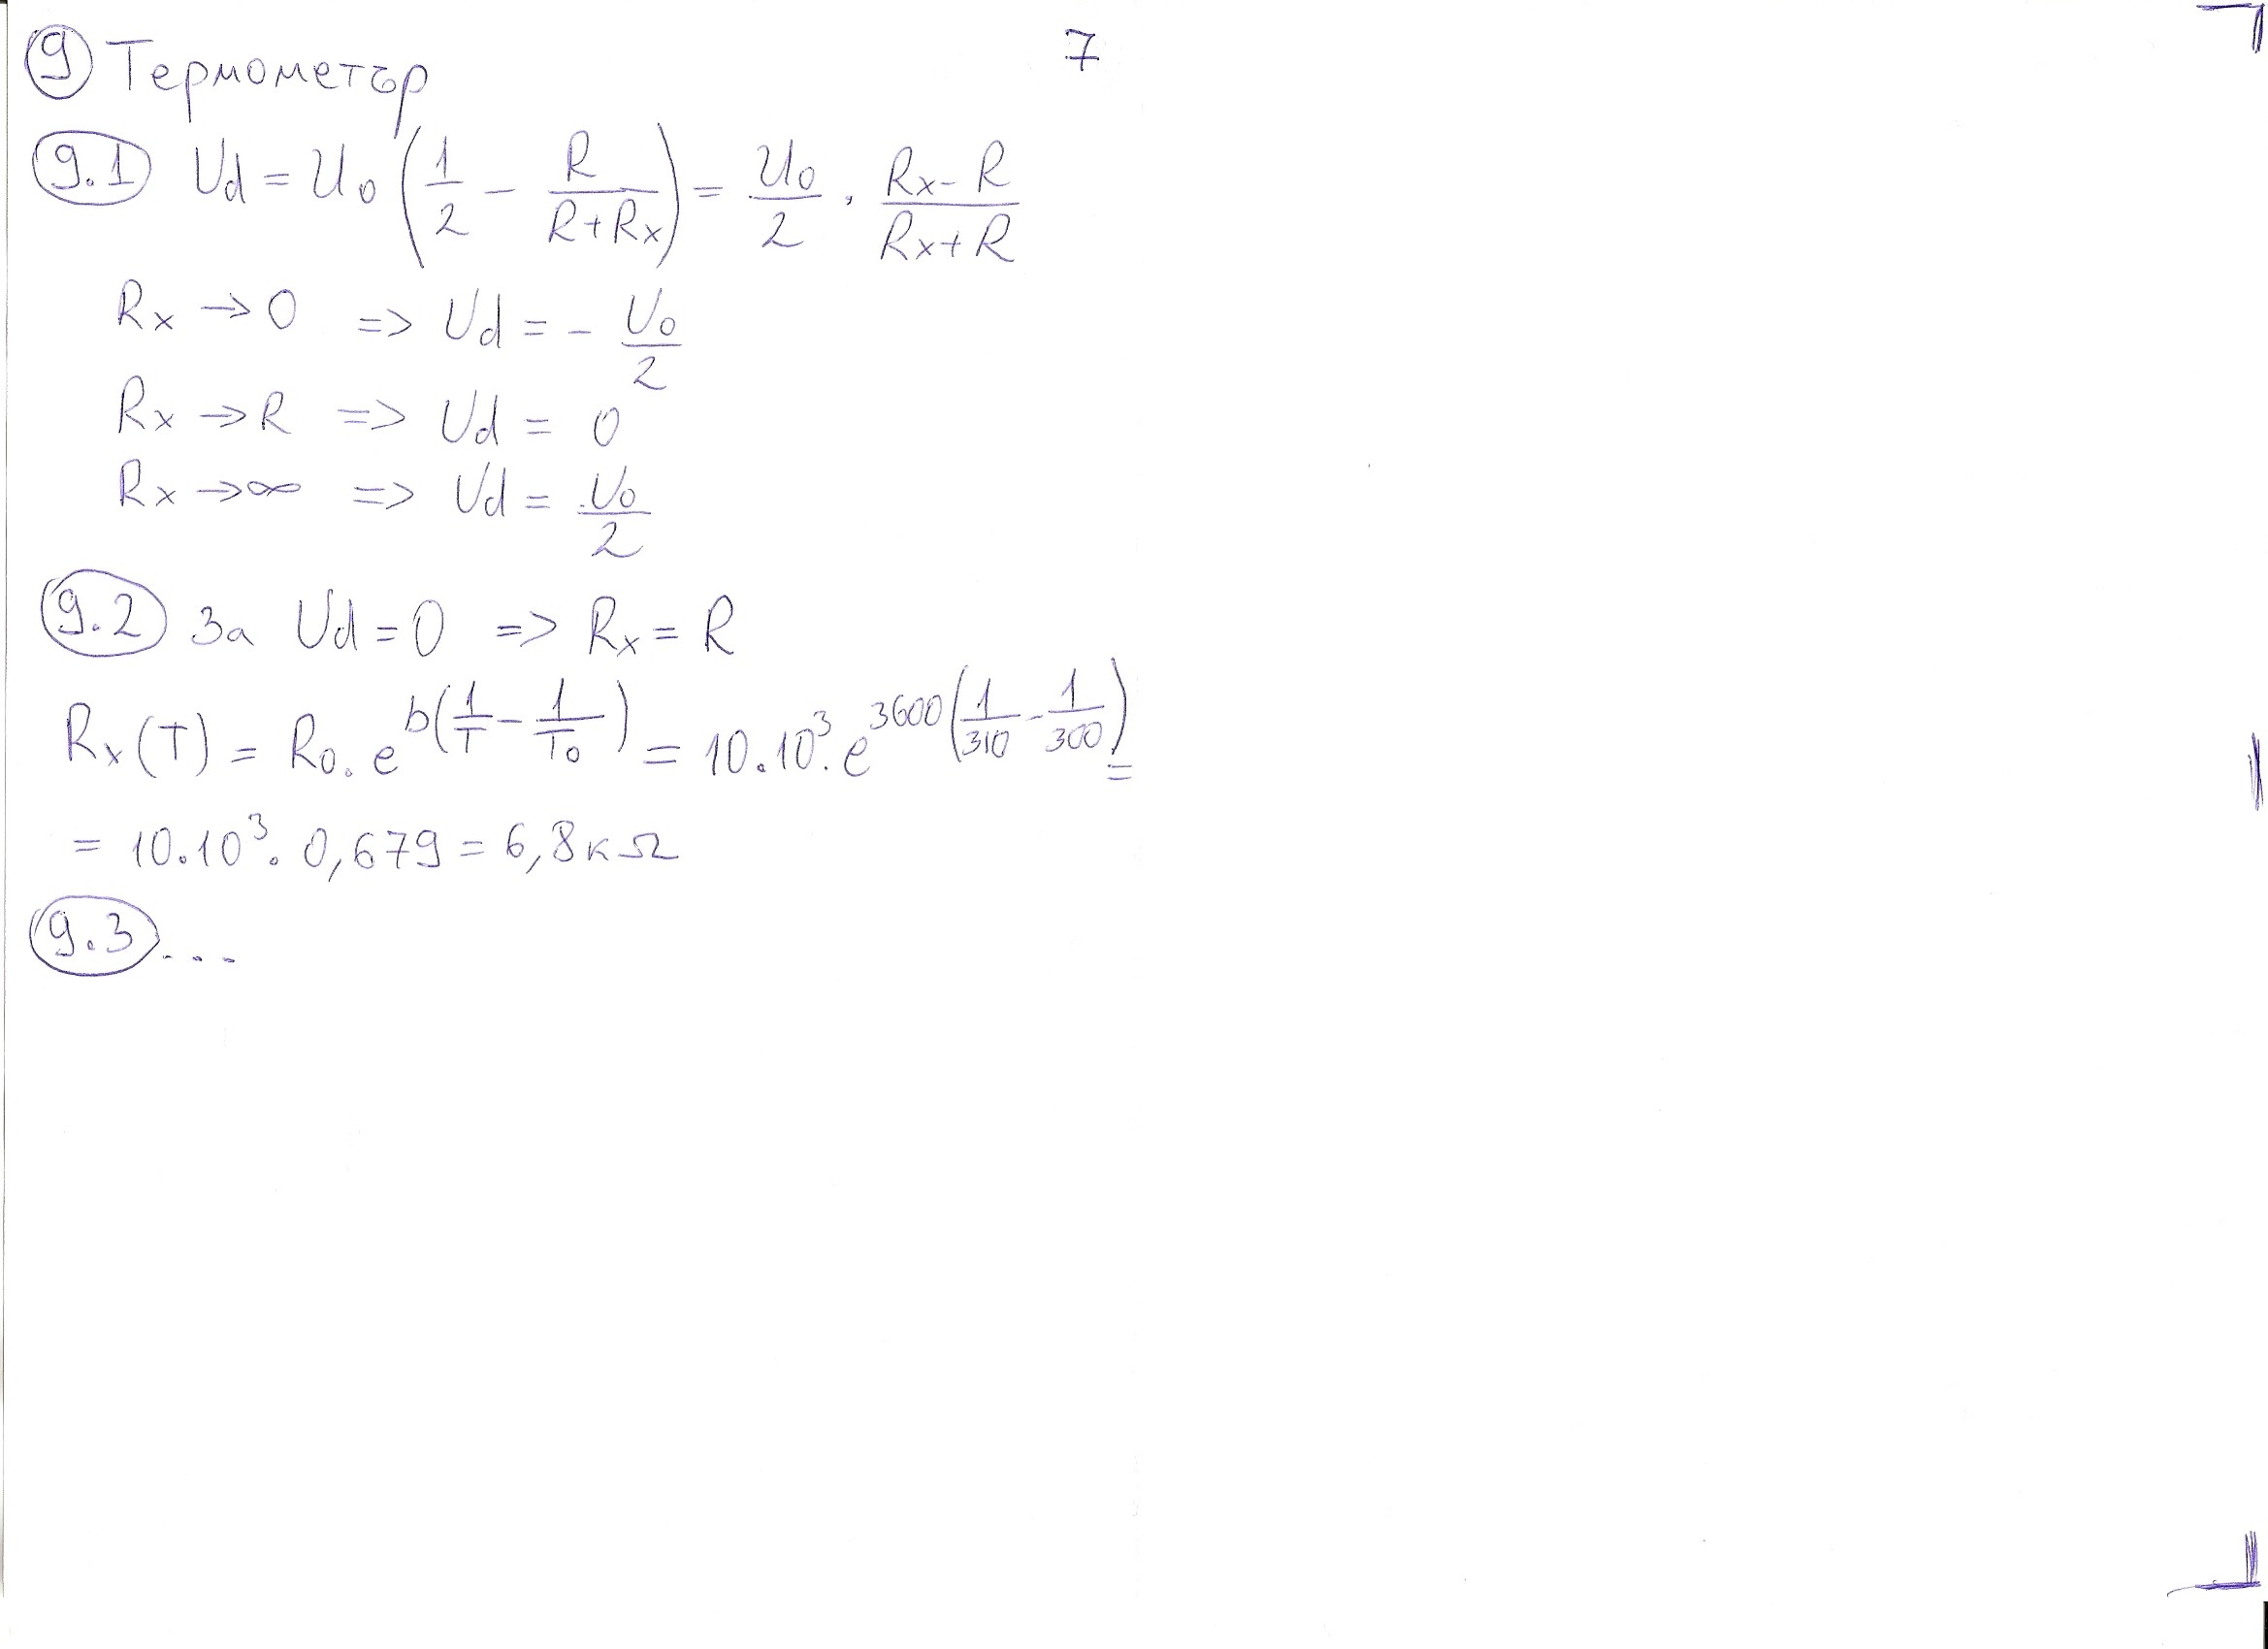 7
9 Термометър
9.1 Ud = U0 (1/2 - R/(R+Rx)) = U0/2 . (Rx-R)/(Rx+R)
Rx → 0 => Ud = - U0/2
Rx → R => Ud = 0
Rx → ∞ => Ud = U0/2
9.2 За Ud = 0 => Rx = R
Rx(T) = R0 . e^b(1/T - 1/T0) = 10.10^3 . e^3600(1/310 - 1/300) =
= 10.10^3 . 0,679 = 6,8кΩ
9.3 ....